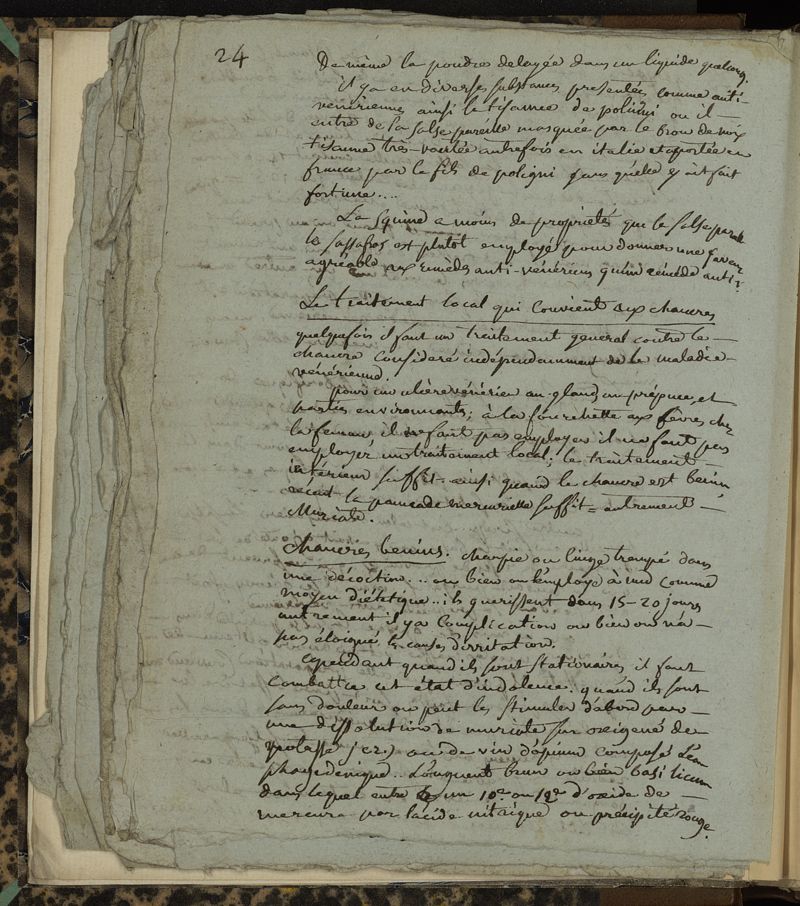 24
De même la poudre delayée dans un liquide quelconq.
il y a en diverses substances presentées comme anti-
venerienne ainsi la tisanne de poligni ou il
entre de la salse pareille masquée par le brou de noix
tisanne très-vantée autrefois en italie et apportée en
france par le fils de poligni sans quelle y ait fait
fortune....
La squine a moins de proprietés que la salse pareille
le sassafras est plutot employé pour donner une saveur
agréable aux remèdes anti-vénériens qu'un remède anti-v.
Le traitement local qui convient aux chancres
quelquefois il faut un traitement general contre le
chancre consideré indépendamment de la maladie
vénérienne.
pour un ulcère vénérien au gland, au prépuce et
parties environnants; à la fourchette aux lèvres chez
la femme il ne faut pas employer il ne faut pas
employer un traitement local; le traitement
intérieur suffit. ainsi quand le chancre est benin,
recent la pommade mercurielle suffit = autrement
Muriate.
chancres benins. charpie ou linge trempé dans
une décoction... ou bien on l'employe à nud comme
moyen diététique.. ils guerissent dans 15-20 jours
autrement il y a complication ou bien on n'a
pas éloigné les causes d'irritation.
cependant quand ils sont stationaires il faut
combattre cet état d'indolence. quand ils sont
sans douleur on peut les stimuler d'abord par
une dissolution de muriate sur oxigené de
potasse ou de vin d'opium composé l'eau
phagedenique.. L'onguent brun ou bien basilicum
dans lequel entre un 10e ou 12e d'oxide de
mercure par l'acide nitrique ou précipité rouge.